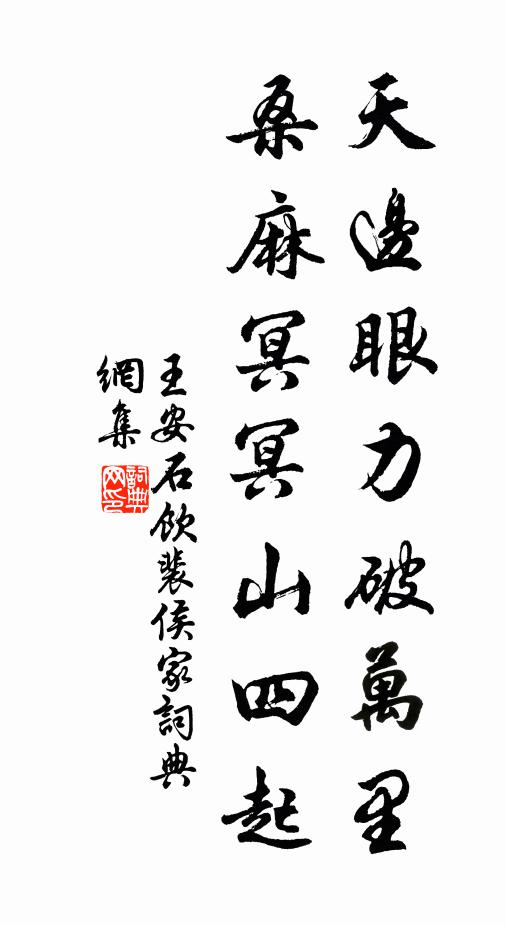 天邊眼力破萬里
桑麻冥冥山四起
王安石飲裴侯家詞典
網集
詞典網印